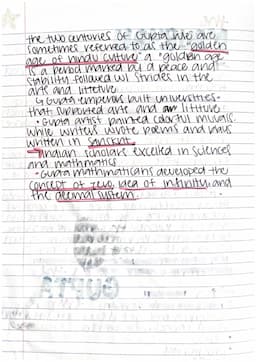 the two centuries of Gupta rule are
sometimes referred to as the "golden
age of hindu culture" a "golden age"
is a period marked by a peace and
stability followed w/ strides in the
arts and litreture
↳ Gupta emperors built universities
that supported arts and litture
• Gupta artist painted colorful murals
while writers wrote poems and plays
written in sanscript.
Indian scholars excelled in sciences
and mathmatics
• Gupta mathmaticans developed the
concept of zero, idea of infinity, and
the decimal system.
GUPTA